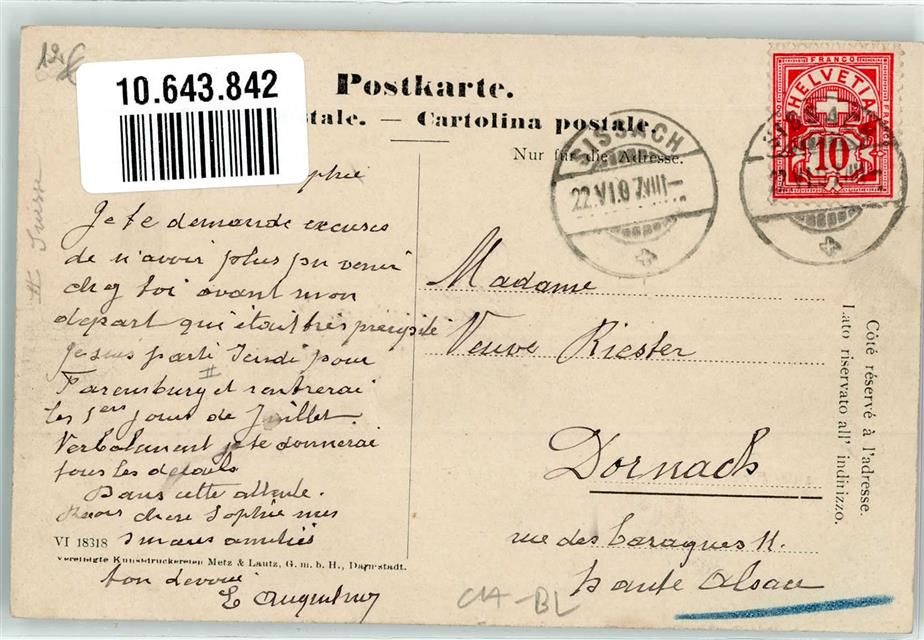 10.643.842
Postkarte.
tale. — Cartolina postale.
Nur für die Adresse.
FRANCO
HELVETIA
10
SISSACH
22.VI.07.VIII–
phie
Je te demande excuses
de n'avoir plus pu venir
chez toi avant mon
depart qui était très précipité
Je suis parti Jeudi pour
Farensburg et rentrerai
les 1ers jours de Juillet
Verbalement je te donnerai
tous les details
Dans cette attente.
chere Sophie mes
amitiés
ton devoué
E
VI 18318
Vereinigte Kunstdruckereien Metz & Lautz, G. m. b. H., Darmstadt.
Madame
Veuve Riester
Dornach
rue des 11.
Haute Alsace
Côté réservé à l'adresse.
Lato riservato all' indirizzo.
Suisse
CH-BL